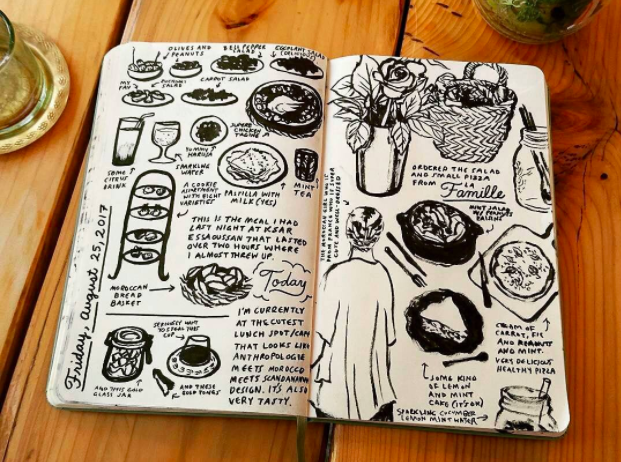 OLIVES AND
PEANUTS
BELL PEPPER
SALAD
EGGPLANT SALAD
(DELICIOUS)
MY
FAV
SALAD
CARROT SALAD
SUPERB
CHICKEN
TAGINE
SOME
CITRUS
DRINK
SPARKLING
WATER
YUMMY
HARIRA
PASTILLA WITH
MILK (YES)
MINT
TEA
A COOKIE
ASSORTMENT
WITH EIGHT
VARIETIES
THIS IS THE MEAL I HAD
LAST NIGHT AT KSAR
ESSAOUSSAN THAT LASTED
OVER TWO HOURS WHERE
I ALMOST THREW UP.
Friday, August 25, 2017
MOROCCAN
BREAD
BASKET
Today
I'M CURRENTLY
AT THE CUTEST
LUNCH SPOT/CAFE
THAT LOOKS LIKE
ANTHROPOLOGIE
MEETS MOROCCO
MEETS SCANDANAVIAN
DESIGN. IT'S ALSO
VERY TASTY.
SERIOUSLY WANT
TO STEAL THIS
CUP
AND THIS GOLD
GLASS JAR
AND THESE
GOLD TONGS
THE MOROCCAN GIRL WHO IS
FROM FRANCE WHO IS SUPER
CUTE AND WELL-DRESSED
ORDERED THE SALAD
AND SMALL PIZZA
FROM LA
Famille
MINT SALAD
RAISINS
CREAM OF
CARROT, FIG
AND
AND MINT.
VERY DELICIOUS
HEALTHY PIZZA
SOME KIND
OF LEMON
AND MINT
CAKE (IT'S OK)
SPARKLING CUCUMBER
LEMON MINT WATER